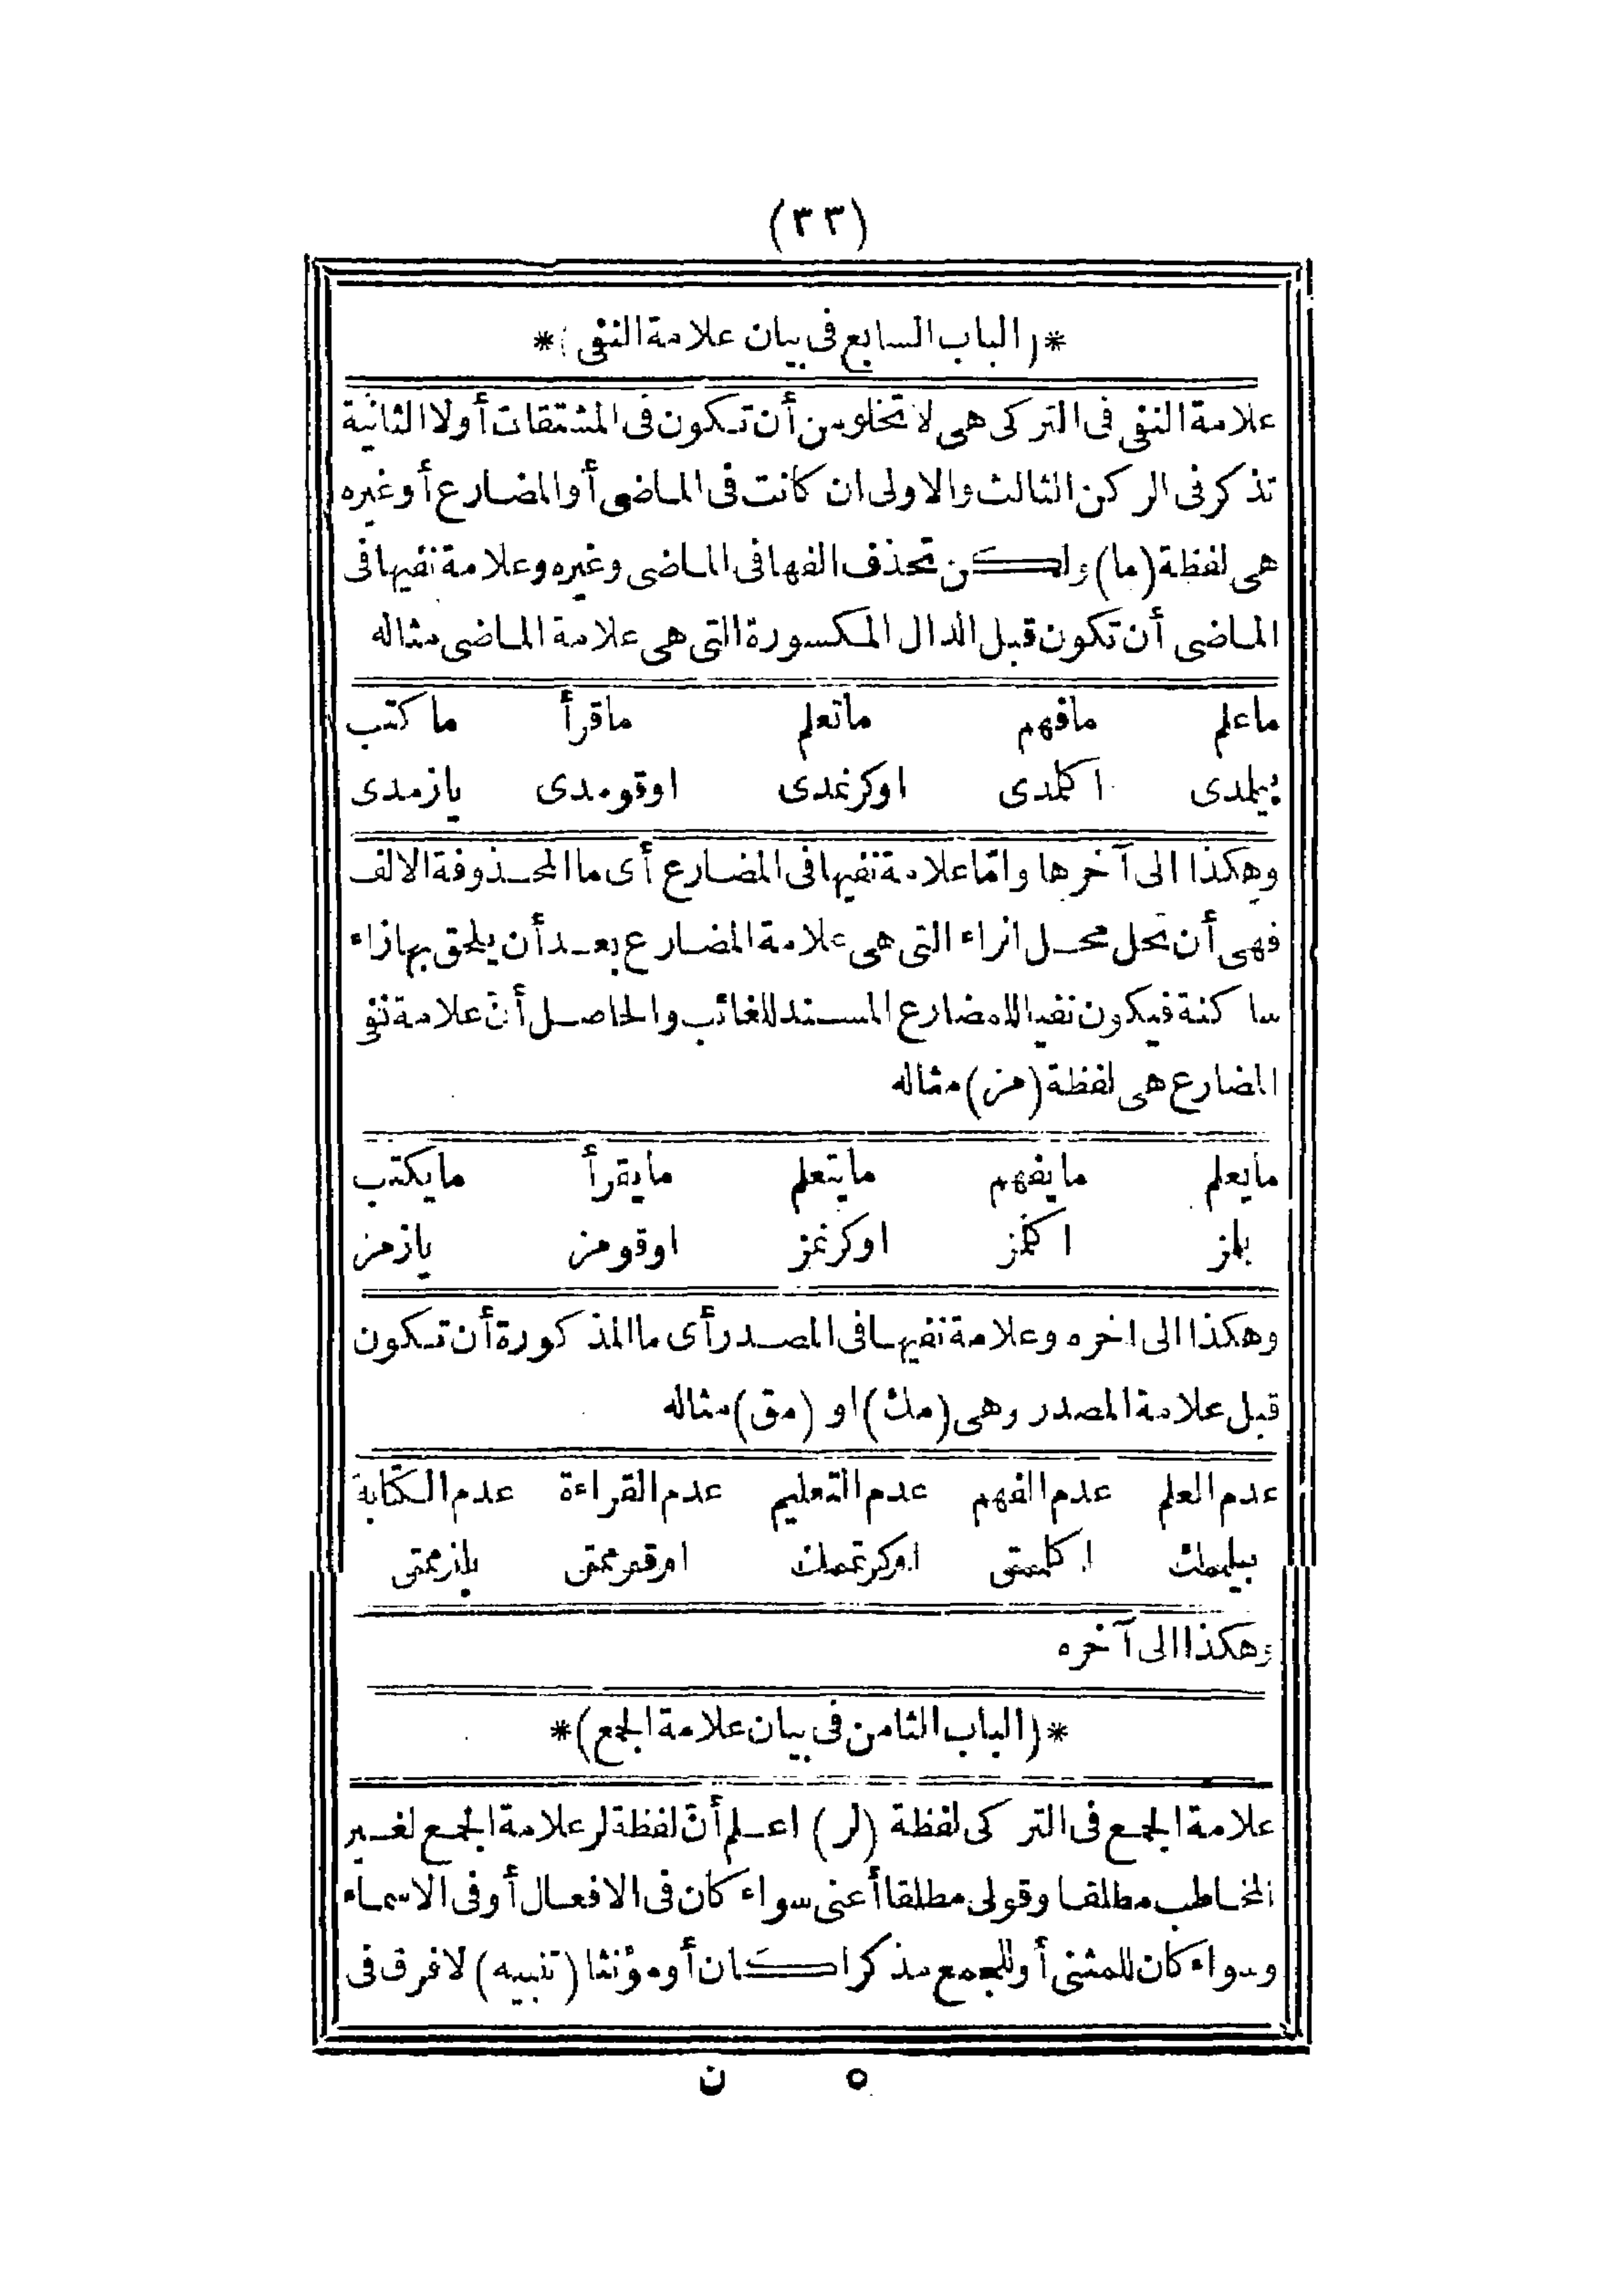 (٣٣)
*(الباب السابع فى بيان علامة النفى)*
علامة النفى فى التركى هى لا تخلو من أن تكون فى المشتقات أولا الثانية
تذكر فى الركن الثالث والاولى ان كانت فى الماضى أو المضارع أو غيره
هى لفظة (ما) ولكن تحذف الفها فى الماضى وغيره وعلامة نفيها فى
الماضى أن تكون قبل الدال المكسورة التى هى علامة الماضى مثاله
ماعلم مافهم ماتعلم ماقرأ ماكتب
بيلمدى اكلمدى اوكرنمدى اوقومدى يازمدى
وهكذا الى آخرها وامّا علامة نفيها فى المضارع أى ما المحذوفة الالف
فهى أن تحل محل الراء التى هى علامة المضارع بعد أن يلحق بها زاء
ساكنة فيكون نفيا للمضارع المسند للغائب والحاصل أنّ علامة نفى
المضارع هى لفظة (مز) مثاله
مايعلم مايفهم مايتعلم مايقرأ مايكتب
بلمز اكلمز اوكرنمز اوقومز يازمز
وهكذا الى اخره وعلامة نفيها فى المصدر أى ما المذكورة أن تكون
قبل علامة المصدر وهى (مك) او (مق) مثاله
عدم العلم عدم الفهم عدم التعليم عدم القراءة عدم الكتابة
بيلممك اكلممق اوكرنممك اوقوممق يازممق
وهكذا الى آخره
*(الباب الثامن فى بيان علامة الجمع)*
علامة الجمع فى التركى لفظة (لر) اعلم أنّ لفظة لر علامة الجمع لغير
المخاطب مطلقا وقولى مطلقا أعنى سواء كان فى الافعال أو فى الاسماء
وسواء كان للمثنى أو للجمع مذكرا كان أو مؤنثا (تنبيه) لا فرق فى
٥ ن